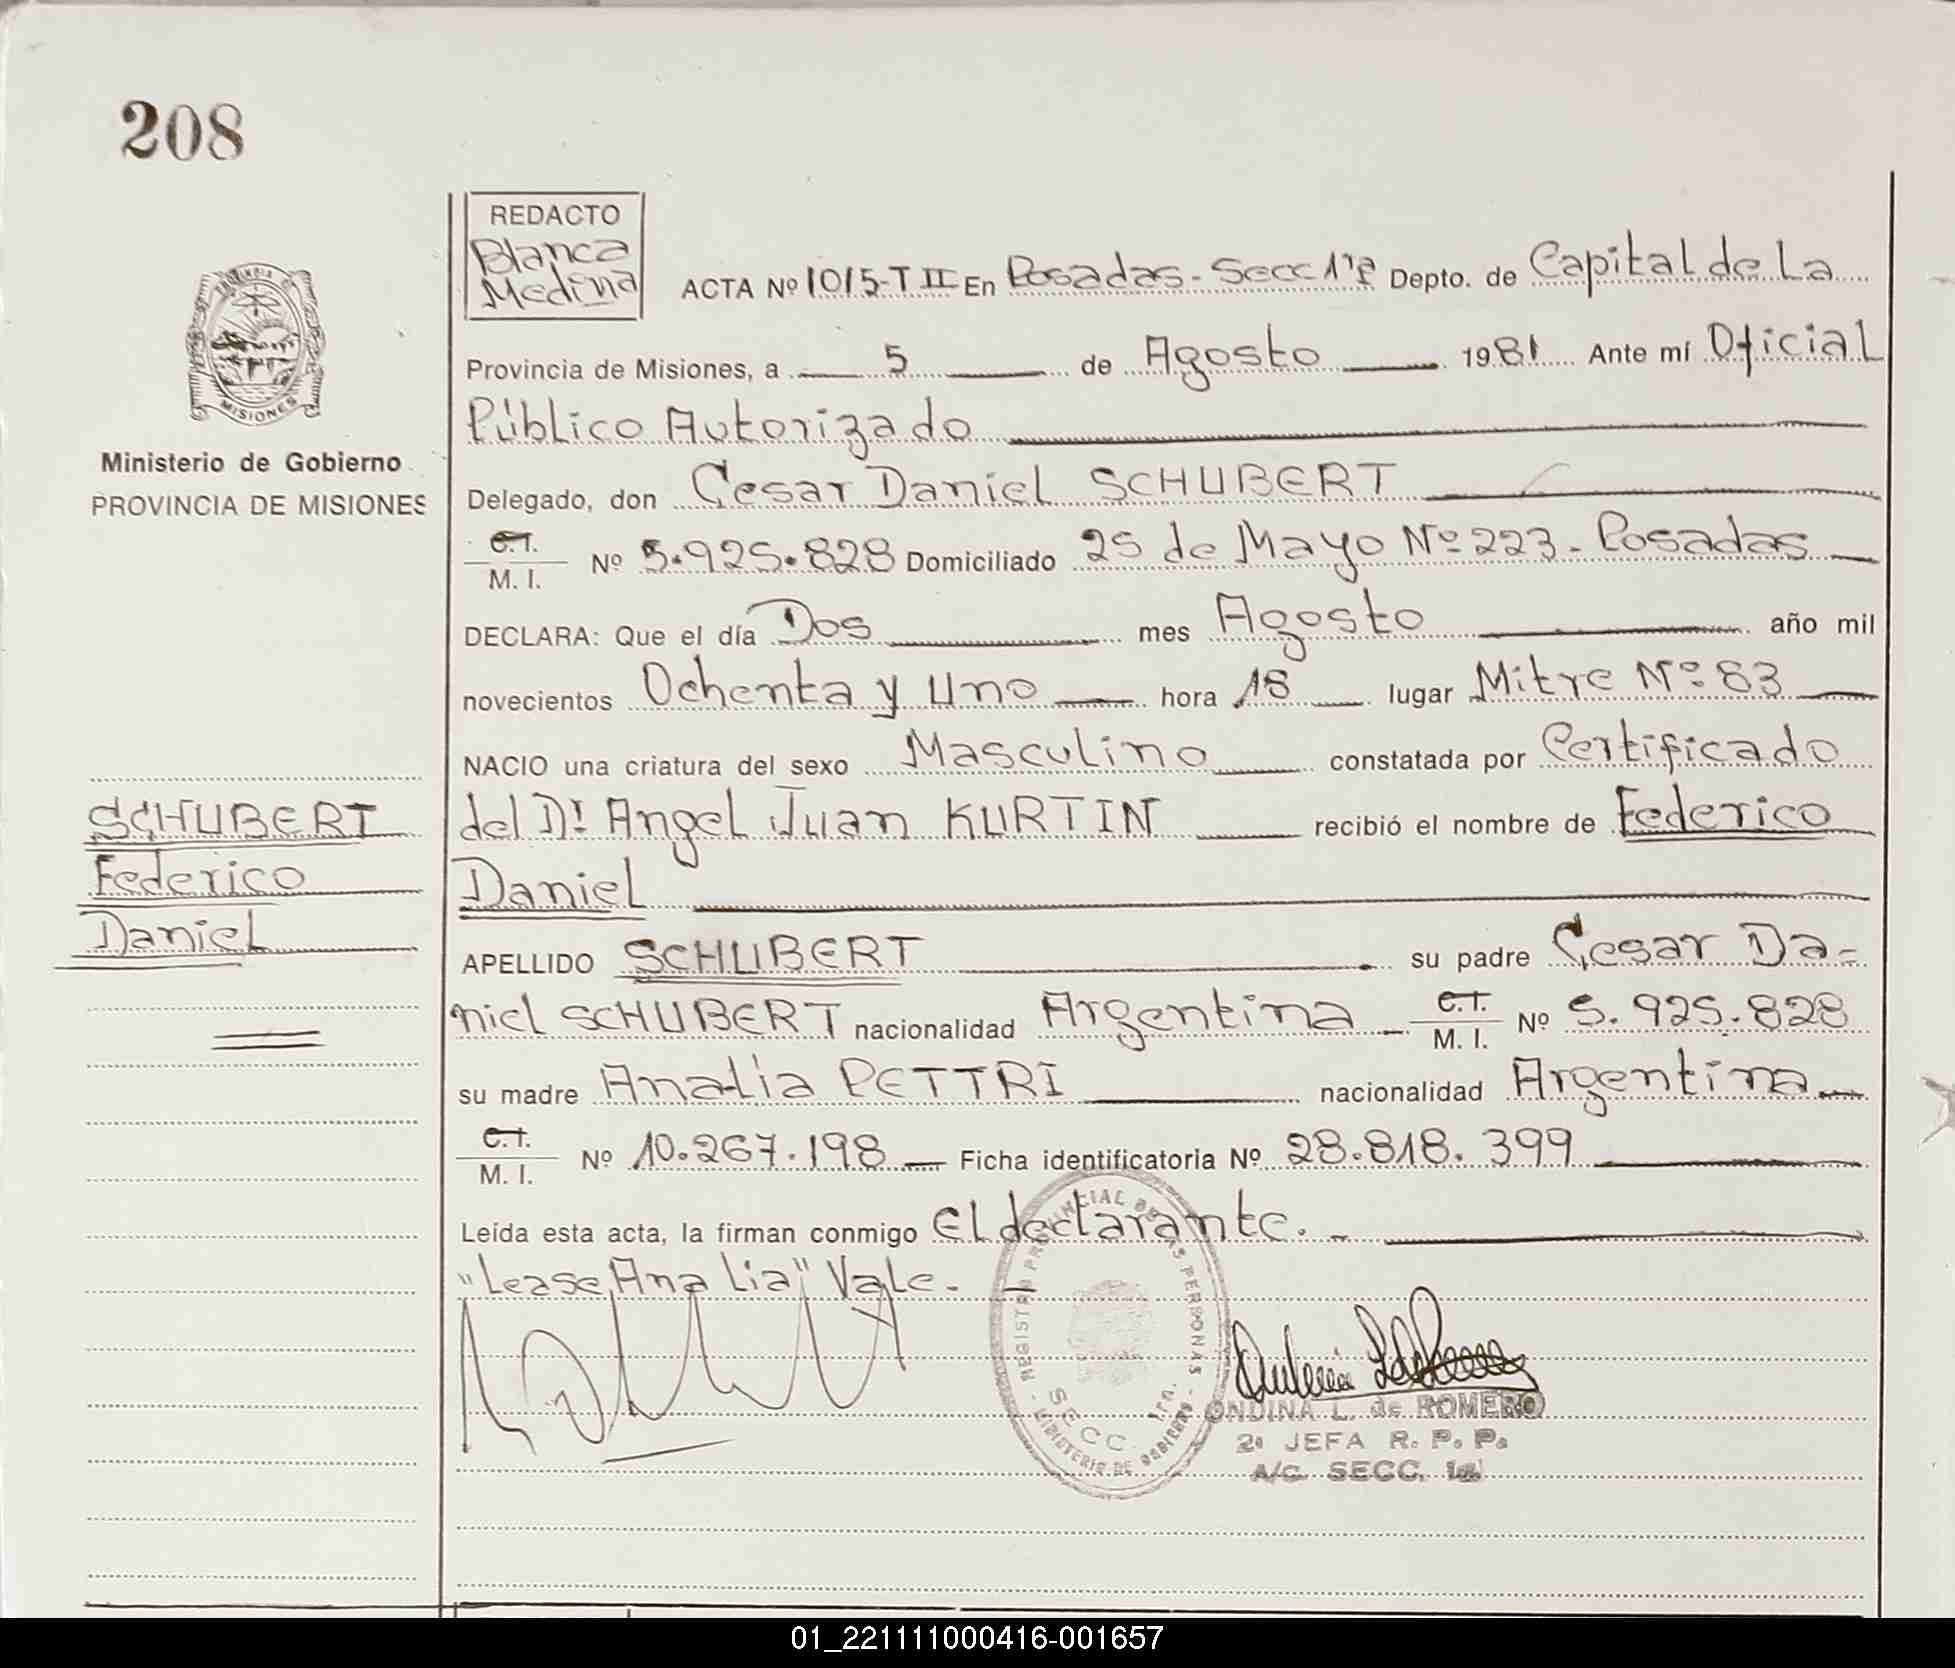 208
REDACTO
Blanca
Medina
ACTA Nº 1015-T II En Posadas - Secc 1ra Depto. de Capital de La
Provincia de Misiones, a 5 de Agosto 1981 Ante mí Oficial
Público Autorizado
Delegado, don Cesar Daniel SCHUBERT
C.I.
M. I. Nº 5.925.828 Domiciliado 25 de Mayo Nº 223 - Posadas
DECLARA: Que el día Dos mes Agosto año mil
novecientos Ochenta y Uno hora 18 lugar Mitre Nº 83
NACIO una criatura del sexo Masculino constatada por Certificado
del Dr Angel Juan KURTIN recibió el nombre de Federico
Daniel
APELLIDO SCHUBERT su padre Cesar Da-
niel SCHUBERT nacionalidad Argentina C.I.
M. I. Nº 5.925.828
su madre Analia PETTRI nacionalidad Argentina
C.I.
M. I. Nº 10.267.198 Ficha identificatoria Nº 28.818.399
Leída esta acta, la firman conmigo El declarante.
"Lease, Ana lia" Vale.
PROVINCIA
MISIONES
Ministerio de Gobierno
PROVINCIA DE MISIONES
SCHUBERT
Federico
Daniel
REGISTRO PROVINCIAL DE LAS PERSONAS
SECC. 1ra.
MINISTERIO DE GOBIERNO
ONDINA L. de ROMERO
2ª JEFA R. P. P.
A/C. SECC. 1a
01_221111000416-001657